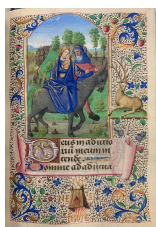 Deus in adiuto
rium meum in
tende
Domine ad adiuua